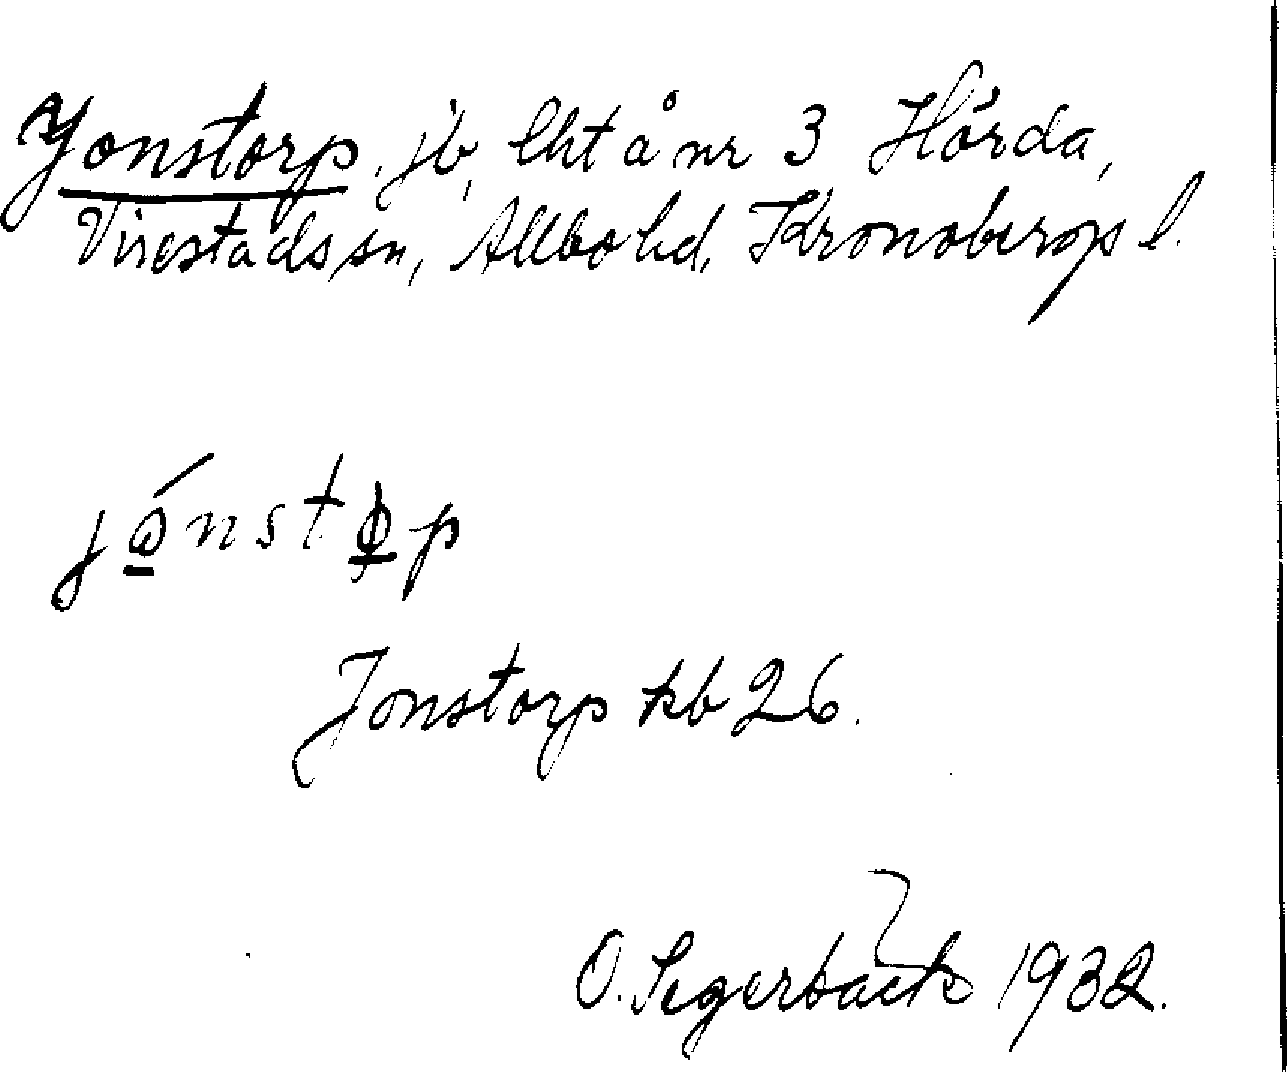 Jonstorp, jb, lht å nr 3 Hörda,
Virestads sn, Allbo hd, Kronobergs l.
Jonstorp kb 26.
O. Segerbäck 1932.